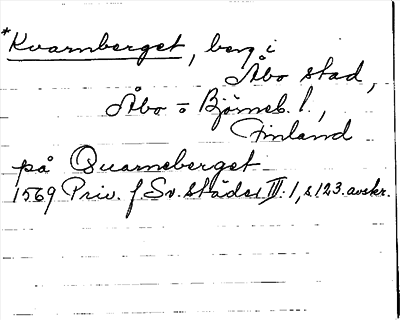 *Kvarnberget, berg i
Åbo stad,
Åbo o Björneb. l.,
Finland
på Quarneberget
1569 Priv. f Sv. städer III: 1, s 123. avskr.